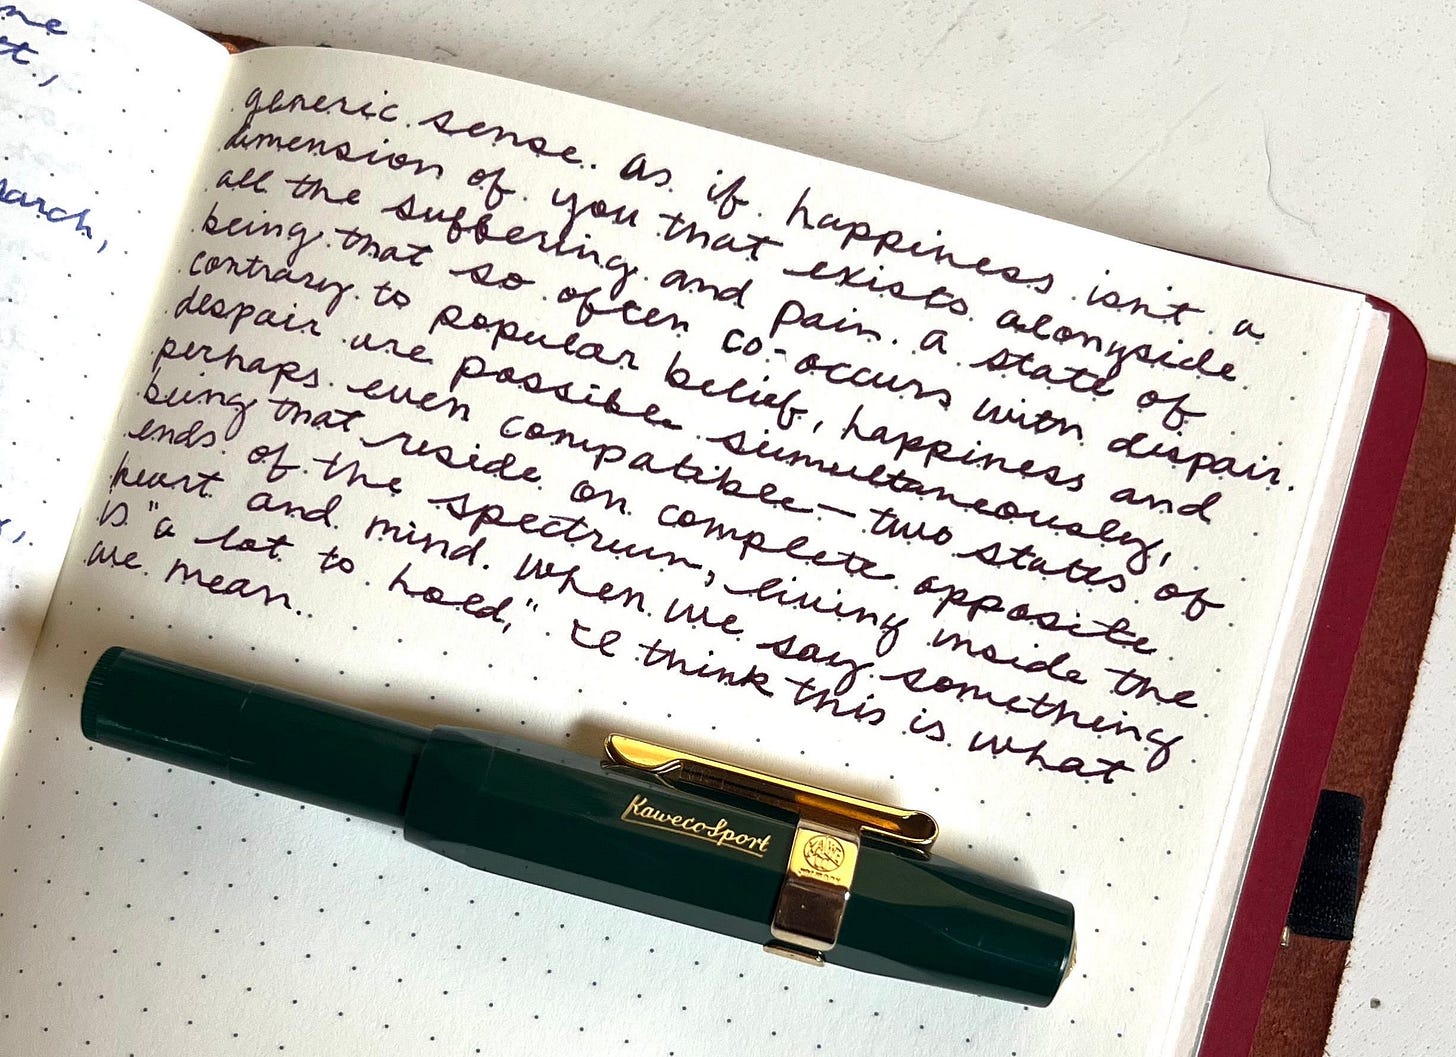 me
t.,
arch,
generic sense. as if happiness isn't a
dimension of you that exists alongside
all the suffering and pain. a state of
being that so often co-occurs with despair.
contrary to popular belief, happiness and
despair are possible simultaneously,
perhaps even compatible — two states of
being that reside on complete opposite
ends of the spectrum, living inside the
heart and mind. when we say something
is "a lot to hold," I think this is what
we mean.
KawecoSport